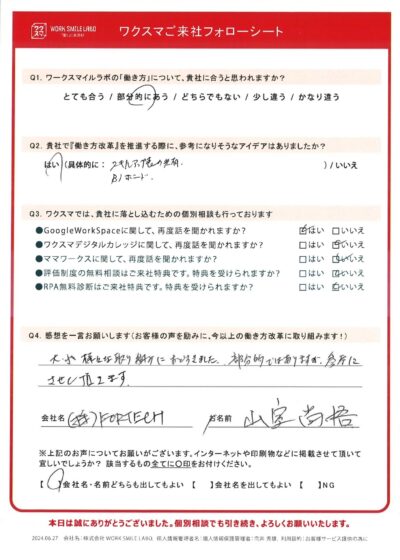 ワクスマ
WORK SMILE LABO
ワクスマご来社フォローシート
Q1. ワークスマイルラボの「働き方」について、貴社に合うと思われますか？
とても合う / 部分的にあう / どちらでもない / 少し違う / かなり違う
Q2. 貴社で『働き方改革』を推進する際に、参考になりそうなアイデアはありましたか？
はい (具体的に： スキルアップ の共有 ) / いいえ
Q3. ワクスマでは、貴社に落とし込むための個別相談も行っております
●GoogleWorkSpaceに関して、再度話を聞かれますか？ ☑はい □いいえ
●ワクスマデジタルカレッジに関して、再度話を聞かれますか？ □はい ☑いいえ
●ママワークスに関して、再度話を聞かれますか？ □はい ☑いいえ
●評価制度の無料相談はご来社特典です。特典を受けられますか？ □はい ☑いいえ
●RPA無料診断はご来社特典です。特典を受けられますか？ □はい ☑いいえ
Q4. 感想を一言お願いします（お客様の声を励みに、今以上の働き方改革に取り組みます！）
取り組み 部分的ではありますが、参考に
させて頂きます
会社名 (株)FORTECH お名前 山室 尚悟
※上記のお声についてお願いがございます。インターネットや印刷物などに掲載させて頂いて
宜しいでしょうか？ 該当するもの全てに〇印をお付けください。
【〇】会社名・名前どちらも出してもよい 【 】会社名を出してもよい 【 】NG
本日は誠にありがとうございました。個別相談でも引き続き、よろしくお願いいたします。
2024.06.27 会社名：株式会社 WORK SMILE LABO、個人情報管理者名：個人情報保護管理者：石井 秀雄、利用目的：お客様サービス提供の為に